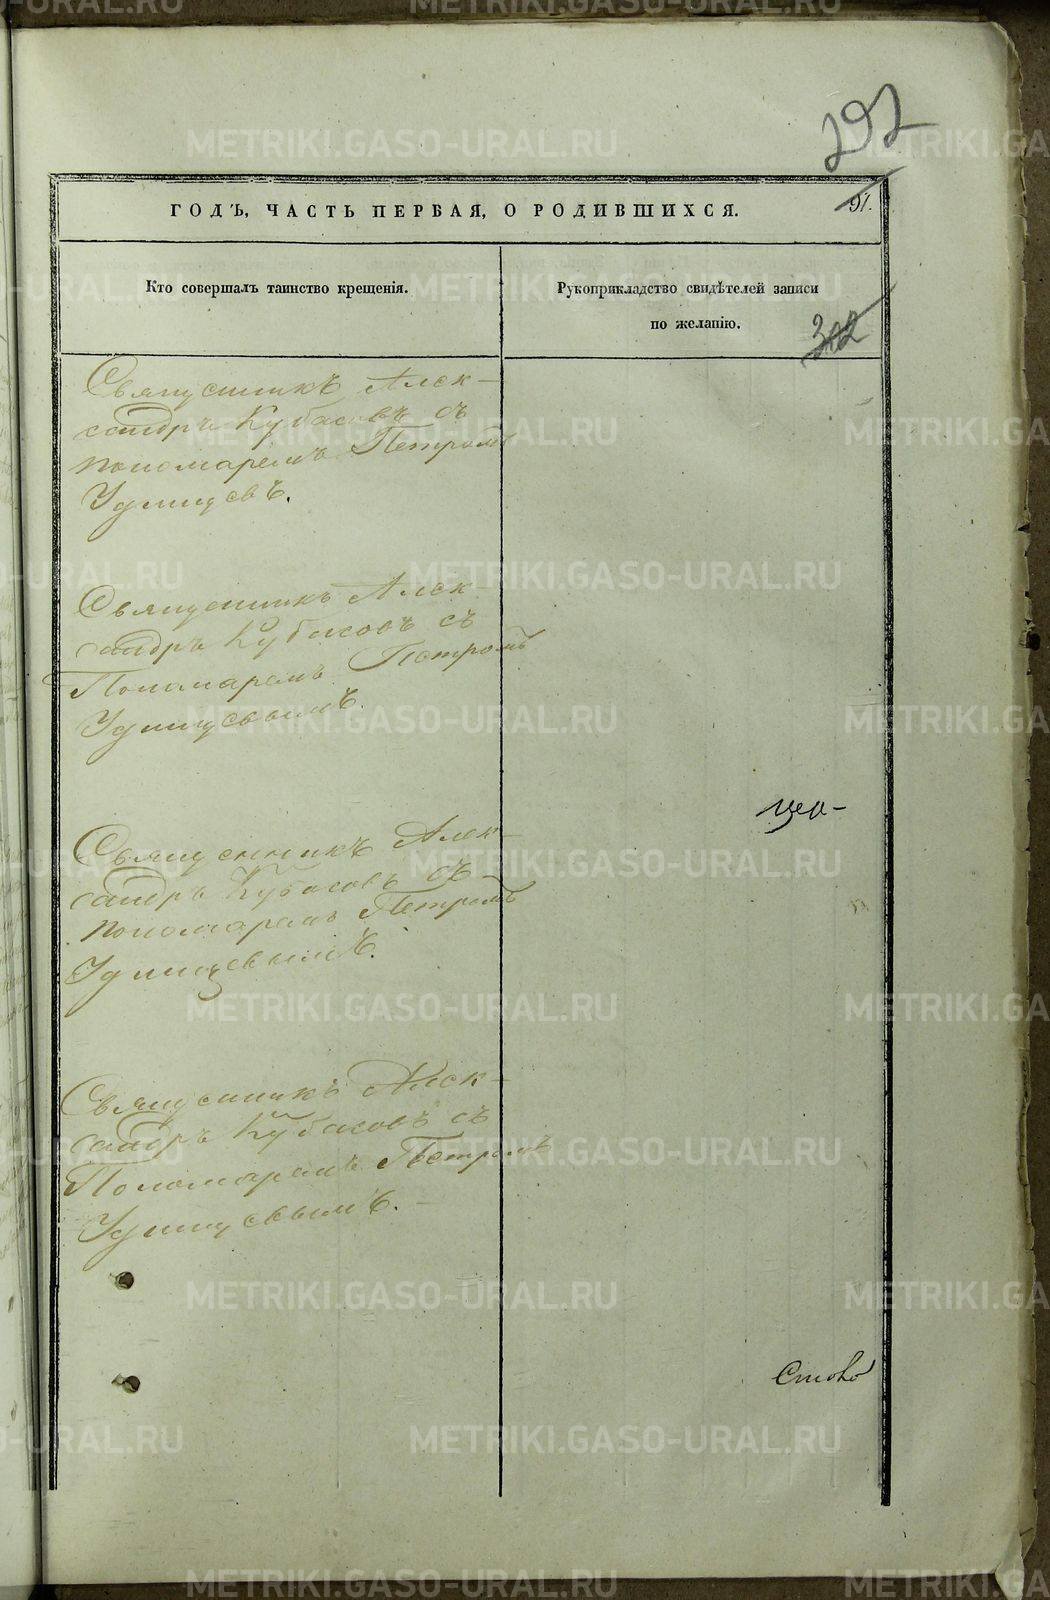 292
ГОДЪ, ЧАСТЬ ПЕРВАЯ, О РОДИВШИХСЯ.
91.
Кто совершалъ таинство крещенія.
Рукоприкладство свидѣтелей записи
по желанію.
302
Священникъ Алек-
сандръ Кубасовъ съ
пономаремъ Петромъ
Удинцевъ.
Священникъ Алек-
сандръ Кубасовъ съ
Пономаремъ Петромъ
Удинцевымъ.
цер-
Священникъ Алек-
сандръ Кубасовъ съ
пономаремъ Петромъ
Удинцевымъ.
Священникъ Алек-
сандръ Кубасовъ съ
Пономаремъ Петромъ
Удинцевымъ.
METRIKI.GASO-URAL.RU